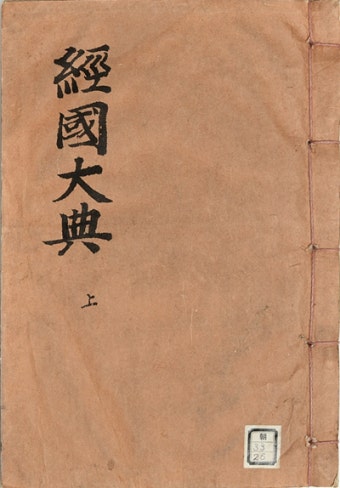 經國大典
上
朝
26